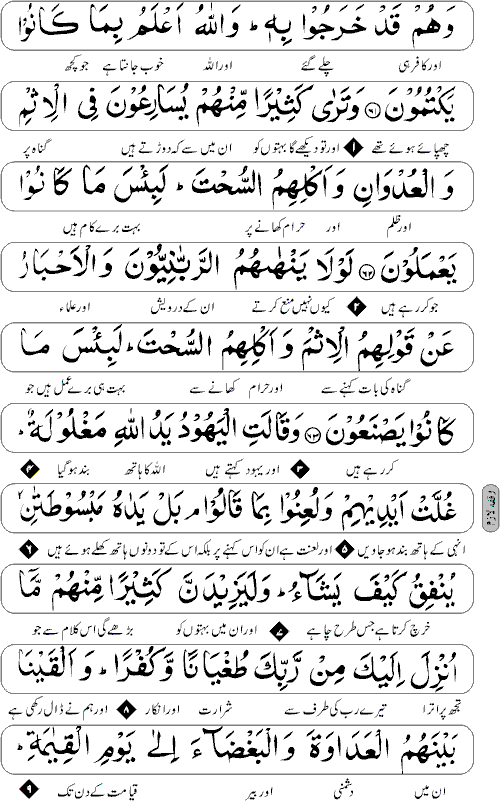 وَهُمْ قَدْ خَرَجُوْا بِهٖ ؕ وَاللّٰهُ اَعْلَمُ بِمَا كَانُوْا
اور کافر ہی چلے گئے اور اللہ خوب جانتا ہے جو کچھ
يَكْتُمُوْنَ ﴿۶۱﴾ وَتَرٰى كَثِيْرًا مِّنْهُمْ يُسَارِعُوْنَ فِى الْاِثْمِ
چھپائے ہوئے تھے ۱ اور تو دیکھے گا بہتوں کو ان میں سے کہ دوڑتے ہیں گناہ پر
وَ الْعُدْوَانِ وَ اَكْلِهِمُ السُّحْتَ ؕ لَبِئْسَ مَا كَانُوْا
اور ظلم اور حرام کھانے پر بہت برے کام ہیں
يَعْمَلُوْنَ ﴿۶۲﴾ لَوْلَا يَنْهٰىهُمُ الرَّبّٰنِيُّوْنَ وَ الْاَحْبَارُ
جو کر رہے ہیں ۲ کیوں نہیں منع کرتے ان کے درویش اور علماء
عَنْ قَوْلِهِمُ الْاِثْمَ وَ اَكْلِهِمُ السُّحْتَ ؕ لَبِئْسَ مَا
گناہ کی بات کہنے سے اور حرام کھانے سے بہت ہی برے عمل ہیں جو
كَانُوْا يَصْنَعُوْنَ ﴿۶۳﴾ وَقَالَتِ الْيَهُوْدُ يَدُ اللّٰهِ مَغْلُوْلَةٌ ؕ
کر رہے ہیں ۳ اور یہود کہتے ہیں اللہ کا ہاتھ بند ہو گیا ۴
غُلَّتْ اَيْدِيْهِمْ وَ لُعِنُوْا بِمَا قَالُوْا ۘ بَلْ يَدٰهُ مَبْسُوْطَتٰنِ ۙ
وقف لازم
انہی کے ہاتھ بند ہو جاویں ۵ اور لعنت ہے ان کو اس کہنے پر بلکہ اس کے تو دونوں ہاتھ کھلے ہوئے ہیں ۶
يُنْفِقُ كَيْفَ يَشَآءُ ؕ وَلَيَزِيْدَنَّ كَثِيْرًا مِّنْهُمْ مَّآ
خرچ کرتا ہے جس طرح چاہے ۷ اور ان میں بہتوں کو بڑھے گی اس کلام سے جو
اُنْزِلَ اِلَيْكَ مِنْ رَّبِّكَ طُغْيَانًا وَّ كُفْرًا ؕ وَ اَلْقَيْنَا
تجھ پر اترا تیرے رب کی طرف سے شرارت اور انکار ۸ اور ہم نے ڈال رکھی ہے
بَيْنَهُمُ الْعَدَاوَةَ وَ الْبَغْضَآءَ اِلٰى يَوْمِ الْقِيٰمَةِ ؕ
ان میں دشمنی اور بیر قیامت کے دن تک ۹